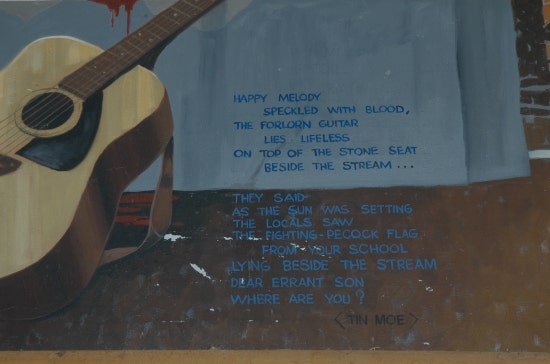 HAPPY MELODY
SPECKLED WITH BLOOD,
THE FORLORN GUITAR
LIES LIFELESS
ON TOP OF THE STONE SEAT
BESIDE THE STREAM...
THEY SAID-
AS THE SUN WAS SETTING
THE LOCALS SAW
THE FIGHTING-PECOCK FLAG
FROM YOUR SCHOOL
LYING BESIDE THE STREAM
DEAR ERRANT SON
WHERE ARE YOU?
<TIN MOE>